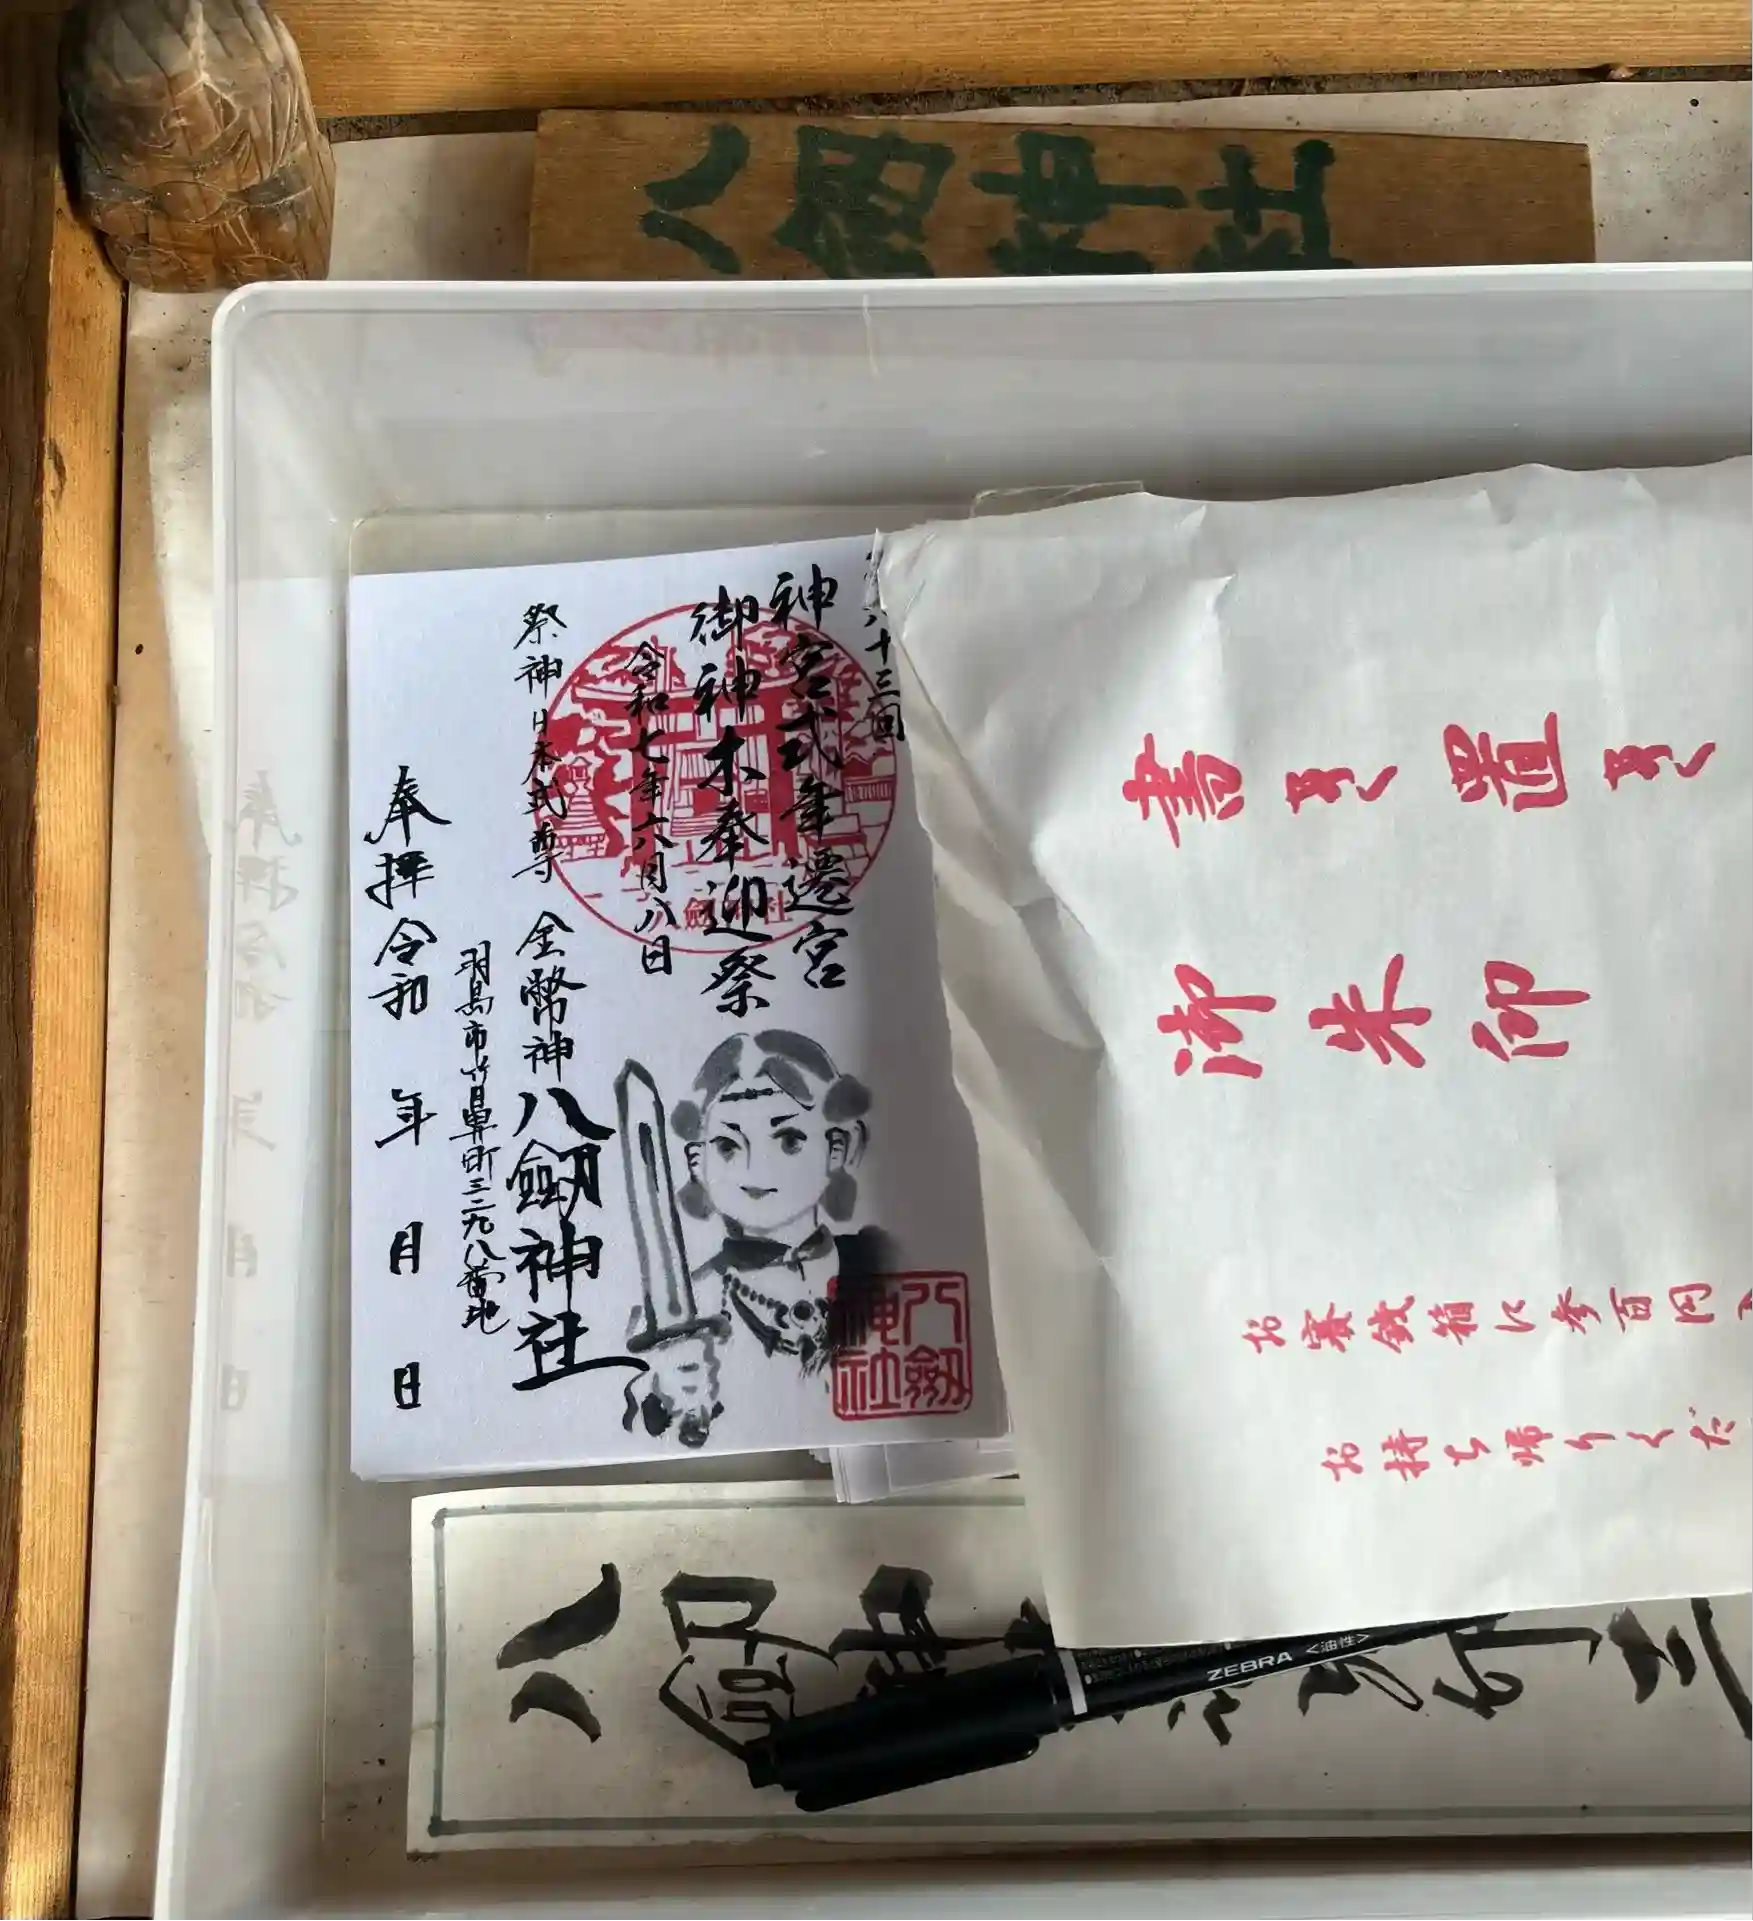 八剱神社
十三回
神宮式年遷宮
御神木奉迎祭
令和七年六月八日
祭神日本武尊
金幣神 八剱神社
羽島市竹鼻町三二九八番地
奉拝 令和 年 月 日
八剱神社
八剱神社
書き置き
御朱印
お賽銭箱に参百円
お持ち帰りくだ
八剱神
ZEBRA <油性>